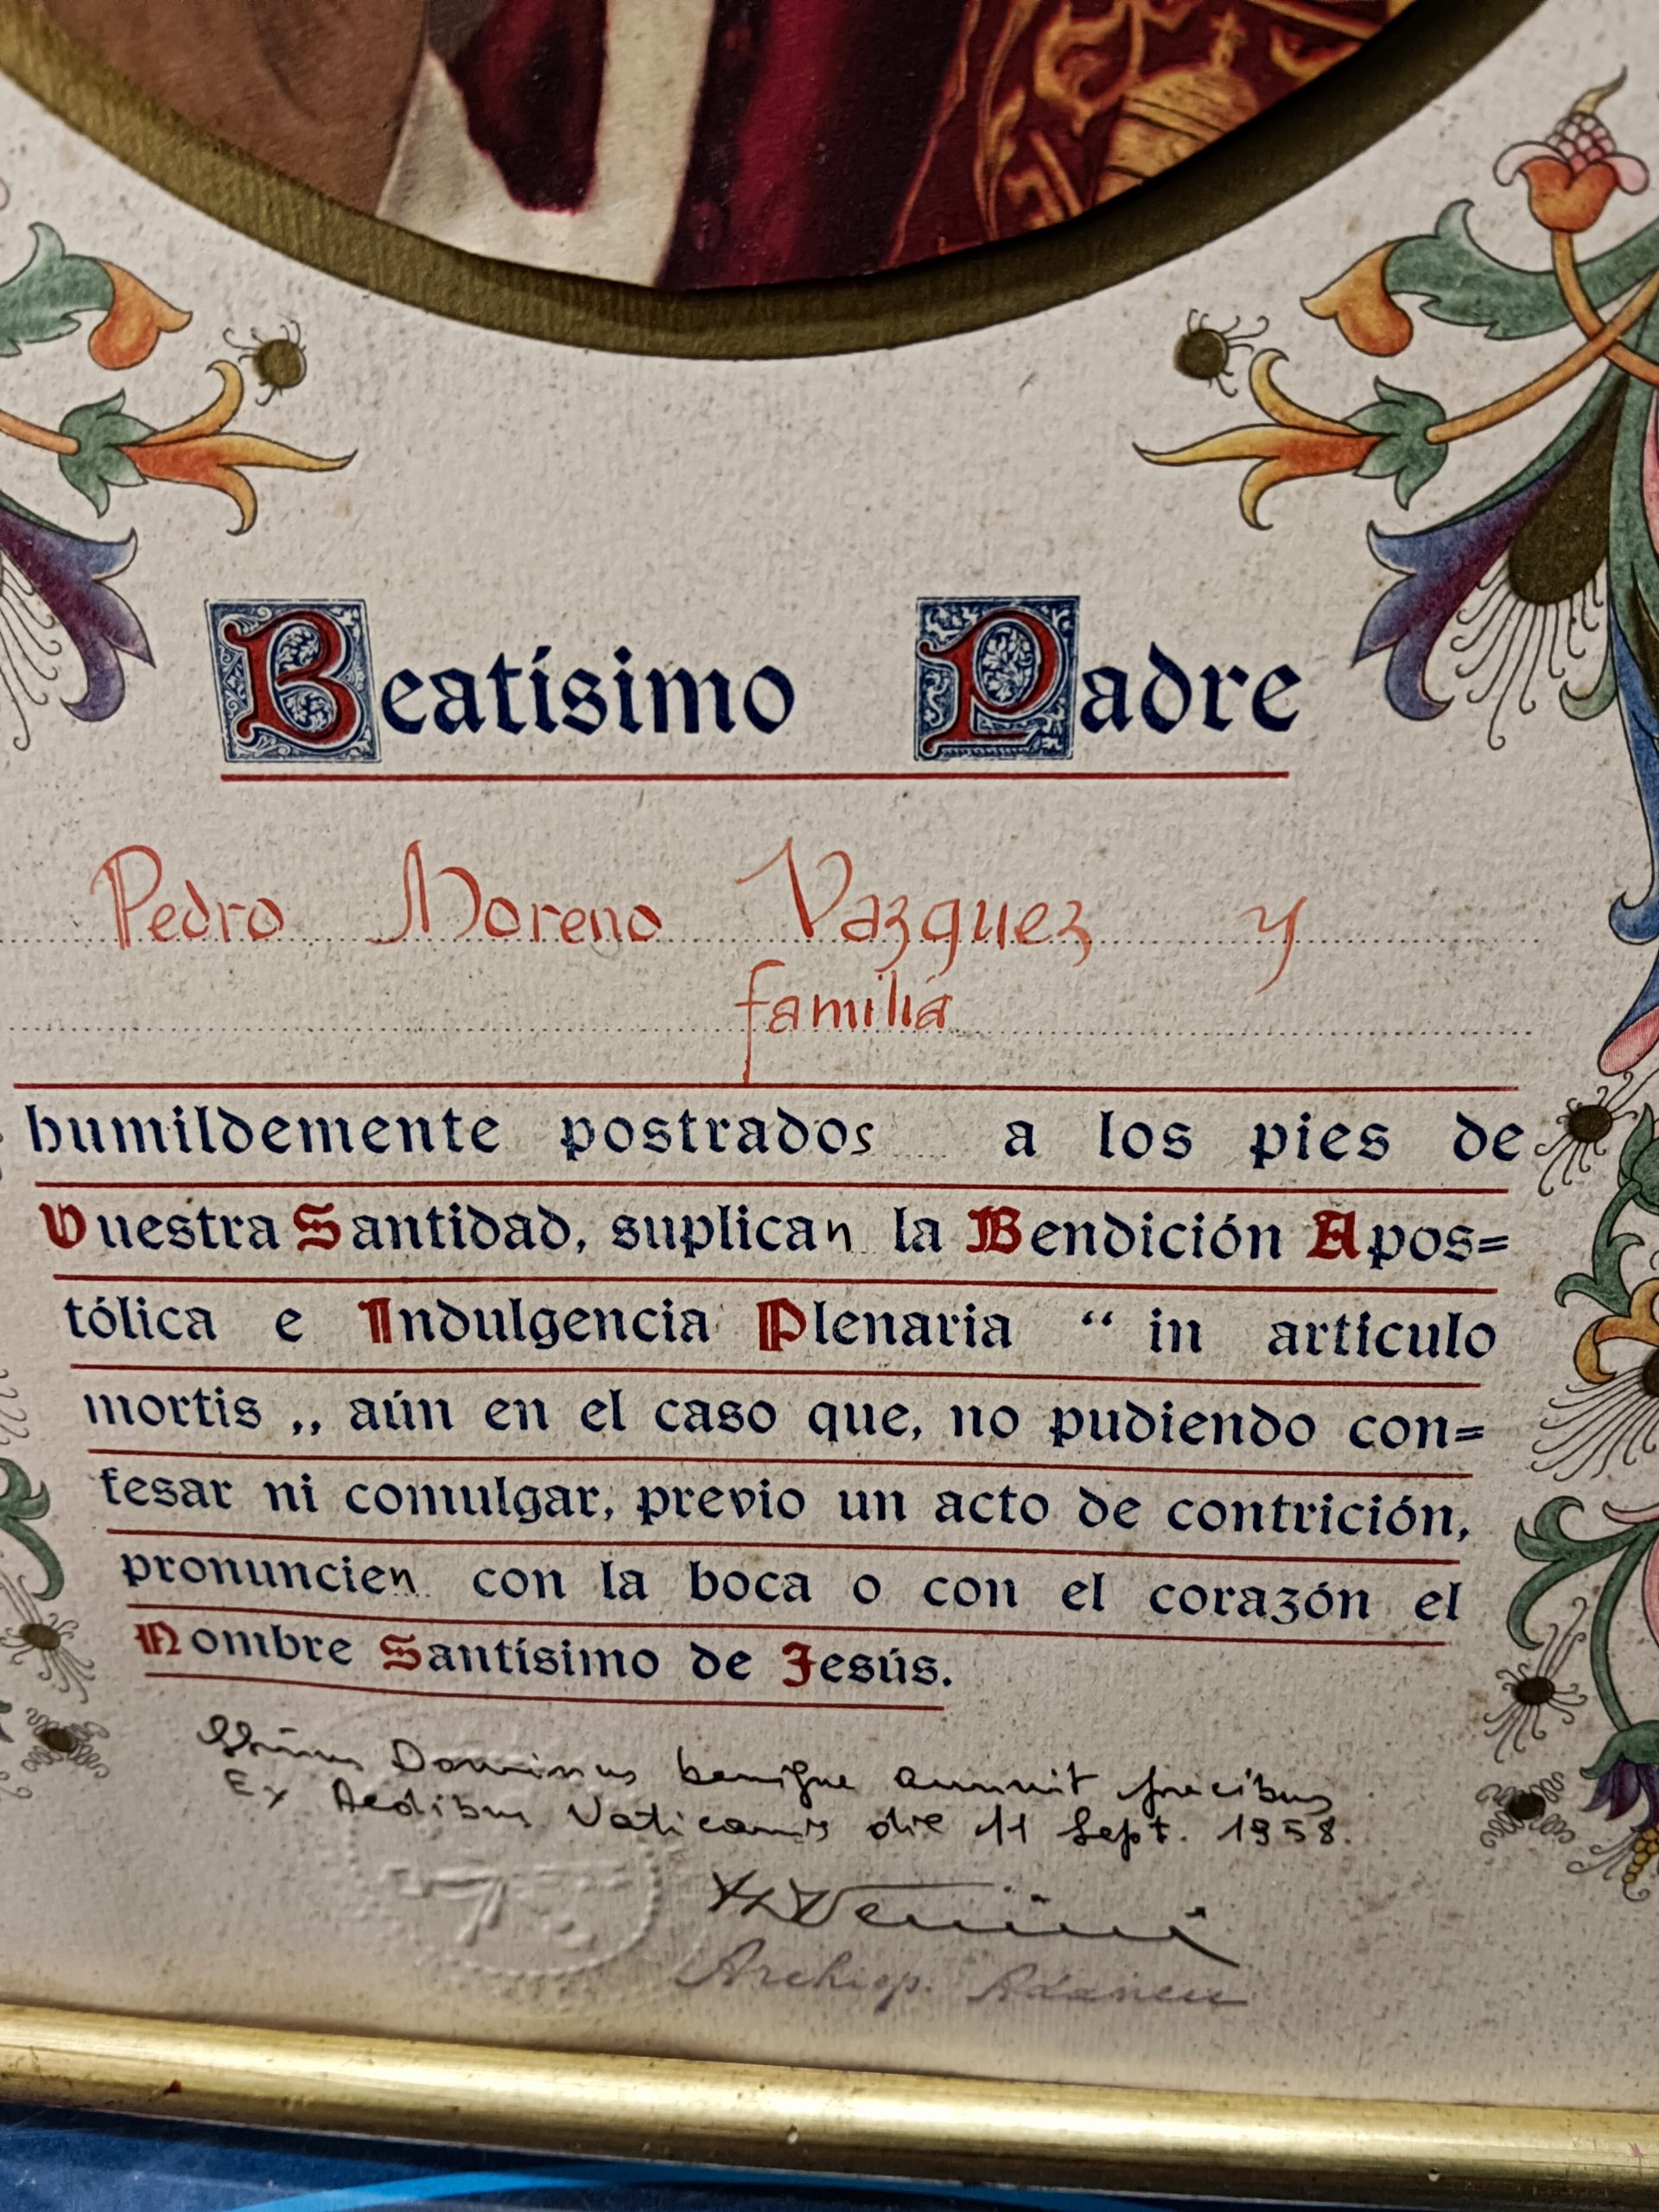 Beatísimo Padre
Pedro Moreno Vazquez y
familia
humildemente postrados a los pies de
Vuestra Santidad, suplican la Bendición Apos=
tólica e Indulgencia Plenaria “ in articulo
mortis „ aún en el caso que, no pudiendo con=
fesar ni comulgar, previo un acto de contrición,
pronuncien con la boca o con el corazón el
Nombre Santísimo de Jesús.
Dominus benigne annuit precibus
Ex Aedibus Vaticanis die 11 Sept. 1958.
Venini
Archiep. Adanen